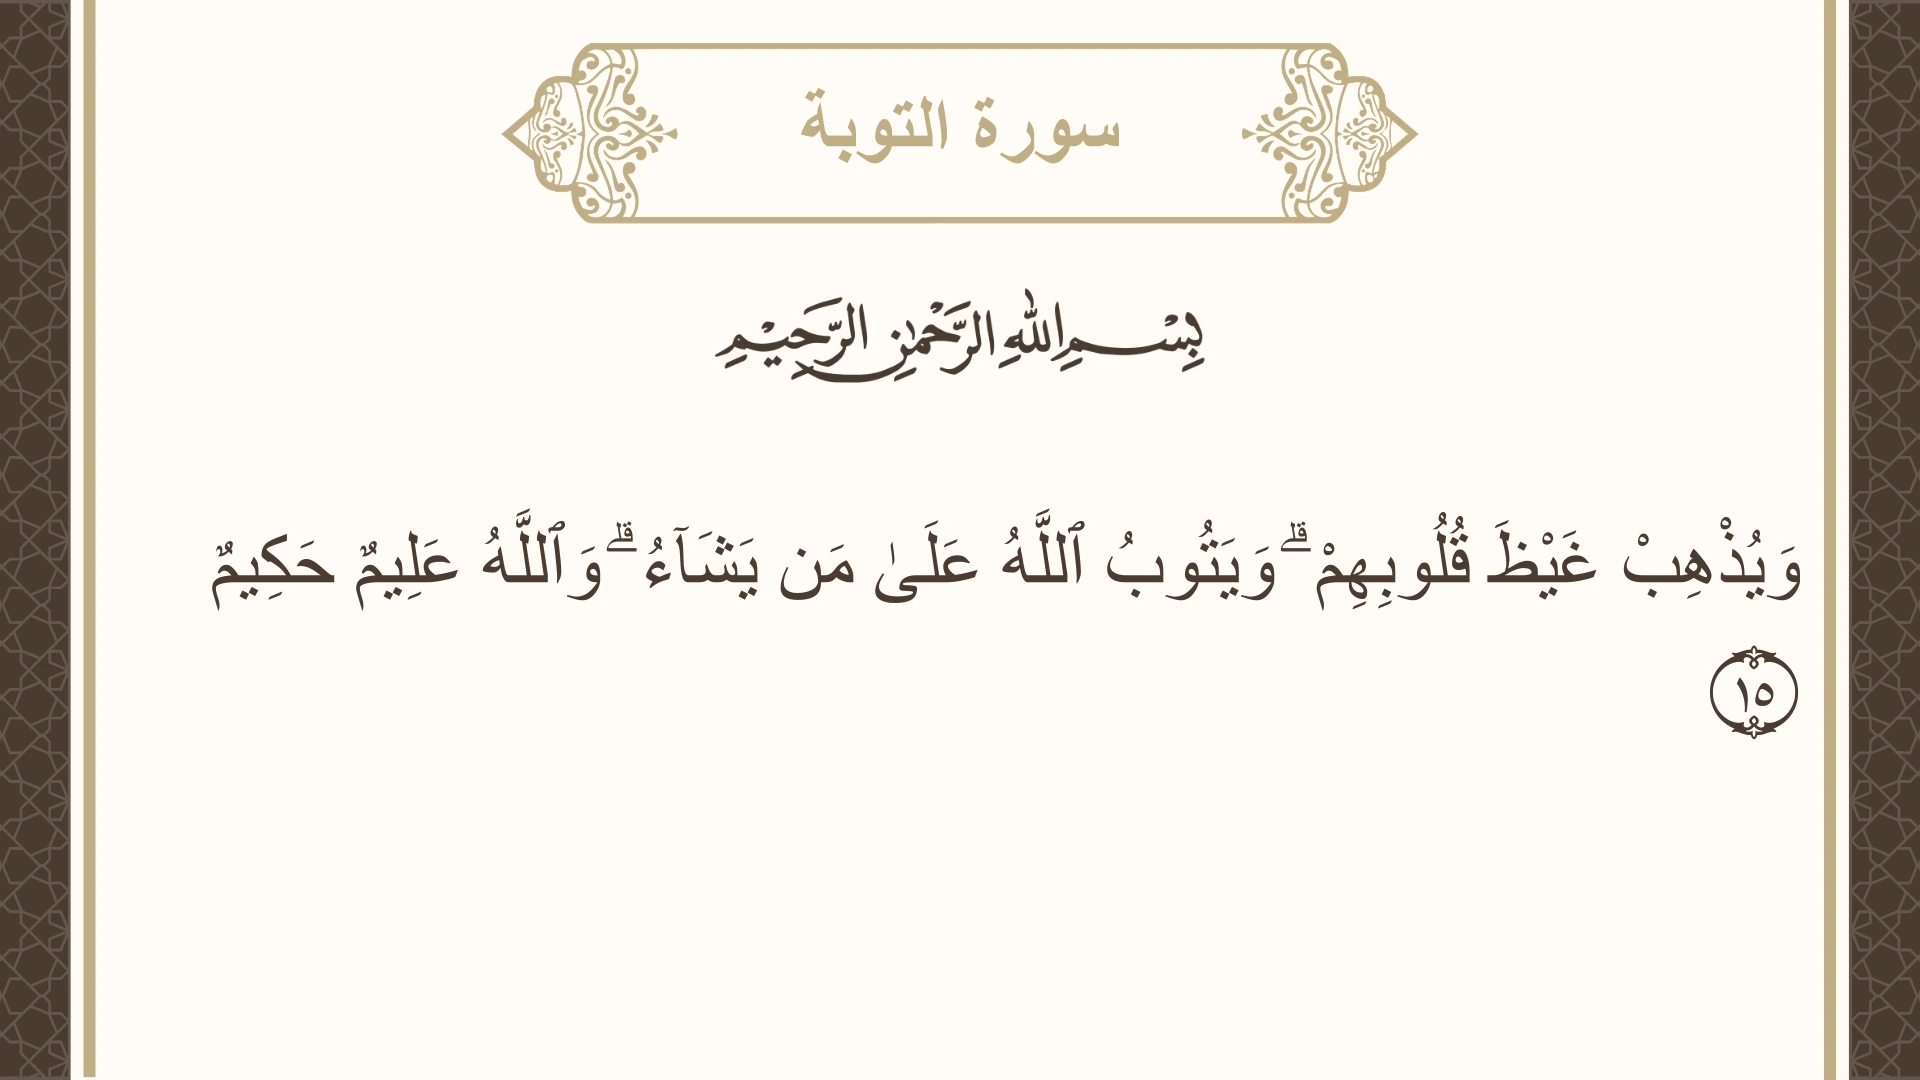 سورة التوبة
بِسْمِ اللهِ الرَّحْمٰنِ الرَّحِيْمِ
وَيُذْهِبْ غَيْظَ قُلُوبِهِمْ ۗ وَيَتُوبُ ٱللَّهُ عَلَىٰ مَن يَشَآءُ ۗ وَٱللَّهُ عَلِيمٌ حَكِيمٌ
١٥